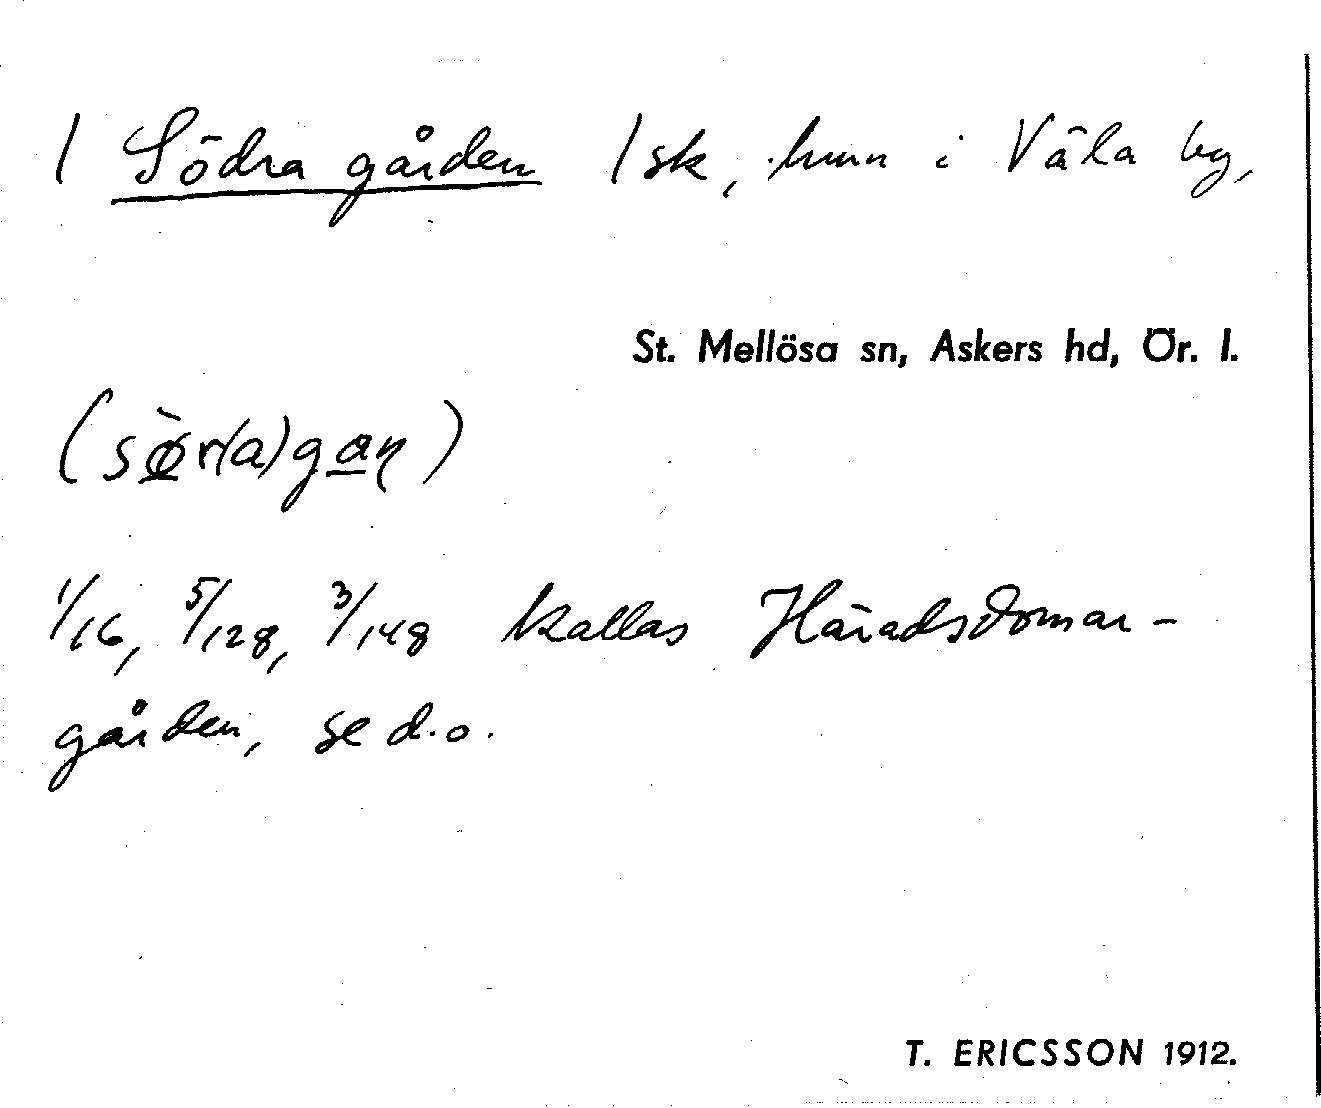 / Södra gården / sk, hmn i Väla by,
St. Mellösa sn, Askers hd, Ör. l.
(sø̀r(a)gaɳ)
1/16, 5/128, 3/148 kallas Häradsdomar-
gården, se d.o.
T. ERICSSON 1912.